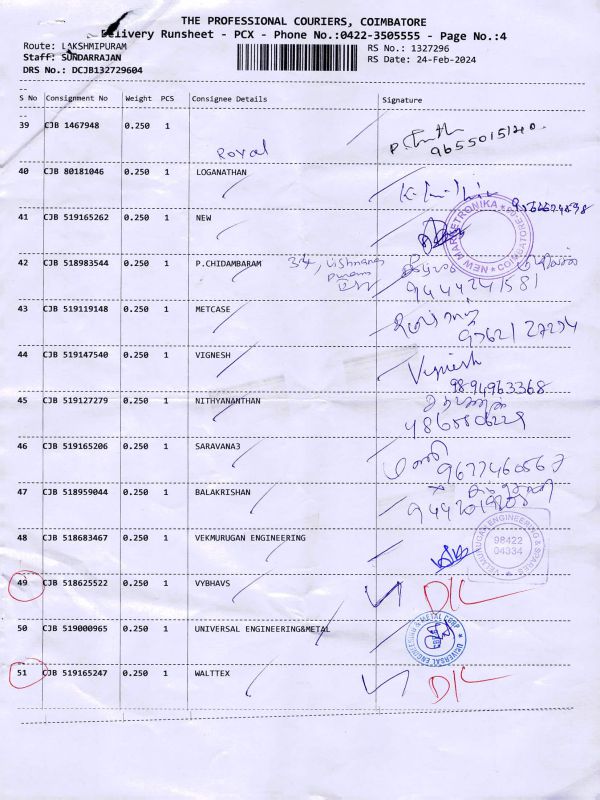 THE PROFESSIONAL COURIERS, COIMBATORE
Delivery Runsheet - PCX - Phone No.:0422-3505555 - Page No.:4
Route: LAKSHMIPURAM RS No.: 1327296
Staff: SUNDARRAJAN RS Date: 24-Feb-2024
DRS No.: DCJB132729604
S No Consignment No Weight PCS Consignee Details Signature
39 CJB 1467948 0.250 1 Royal 9655015140
40 CJB 80181046 0.250 1 LOGANATHAN
41 CJB 519165262 0.250 1 NEW NEW MARKETRONIKA COIMBATORE
42 CJB 518983544 0.250 1 P.CHIDAMBARAM 34, 9444241581
43 CJB 519119148 0.250 1 METCASE
44 CJB 519147540 0.250 1 VIGNESH Vignesh 9894963368
45 CJB 519127279 0.250 1 NITHYANANTHAN
46 CJB 519165206 0.250 1 SARAVANA3
47 CJB 518959044 0.250 1 BALAKRISHAN
48 CJB 518683467 0.250 1 VEKMURUGAN ENGINEERING VELMURUGAN ENGINEERING & SPARES 98422 04334
49 CJB 518625522 0.250 1 VYBHAVS D/L
50 CJB 519000965 0.250 1 UNIVERSAL ENGINEERING&METAL UNIVERSAL ENGINEERING & METAL CORP
51 CJB 519165247 0.250 1 WALTTEX D/L